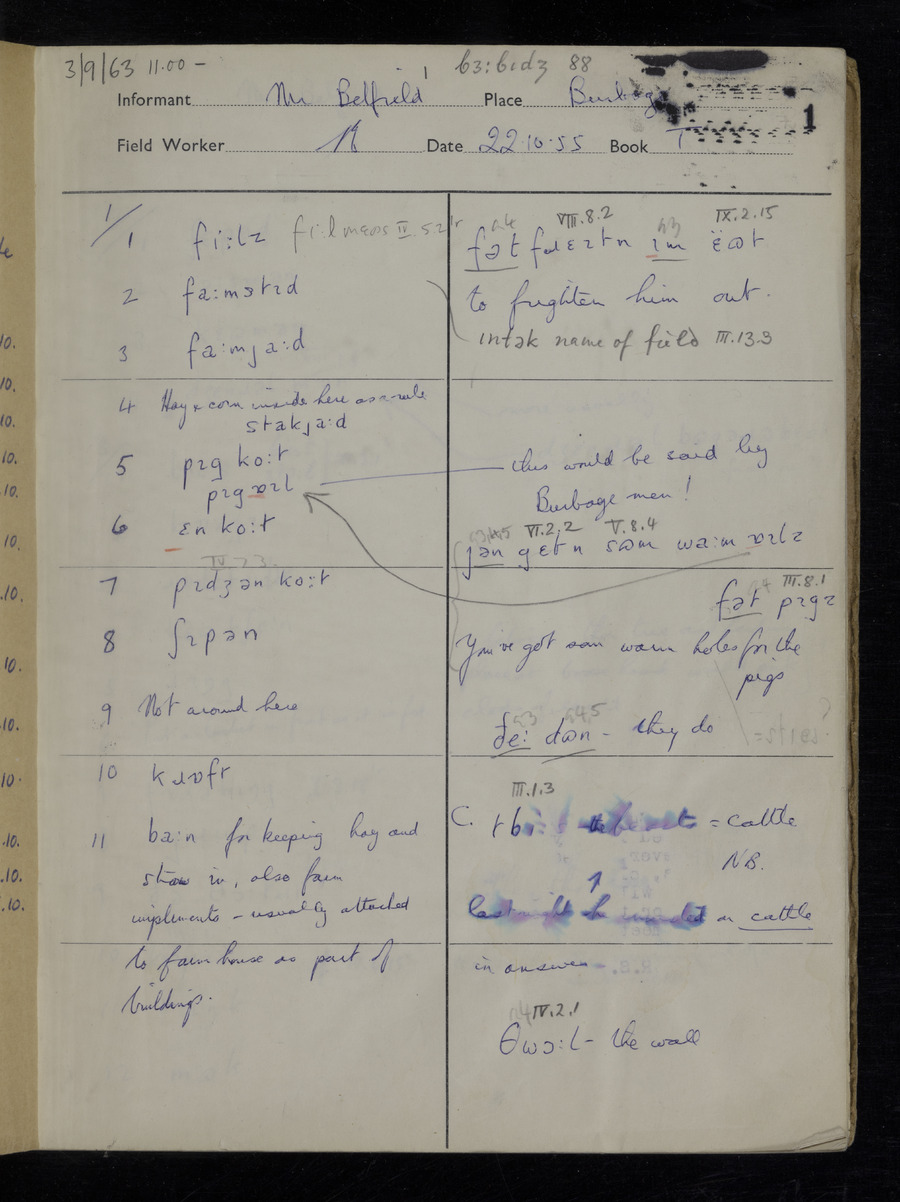 3/9/63 11.00 – bɜ:bɪdʒ 88
Informant Mr Belfield Place Burbage
1
Field Worker Date 22.10.55 Book I
1/
1 fi:lz
2 fa:mstɪd
3 fa:mja:d
4 Hay & corn inside here as a rule
stakja:d
5 pɪg ko:t
pɪg ɒɪl
6 ɛn ko:t
7 pɪdʒən ko:t
8 ʃɪpən
9 Not around here
10 kɹɒft
11 ba:n for keeping hay and
straw in, also farm
implements – usually attached
to farm house as part of
buildings.
VIII.8.2 IX.2.15
fət ɪm
to frighten him out.
intak name of field III.13.3
this would be said by
Burbage men!
VI.2.2 V.8.4
jən gɛtn sɷm wa:m ɒɪlz
III.8.1
fət pɪgz
You've got som warm holes for the
pigs
ðe: dɷn – they do
III.1.3
C. = cattle
NB.
last night he on cattle
in answer –
IV.2.1
θwɔ:l – the wall